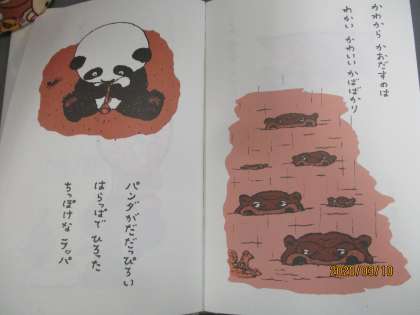 かわから かおだすのは
わかい かわいい かばばかり
パンダがだだっぴろい
はらっぱで ひろった
ちっぽけな ラッパ
2020/09/10